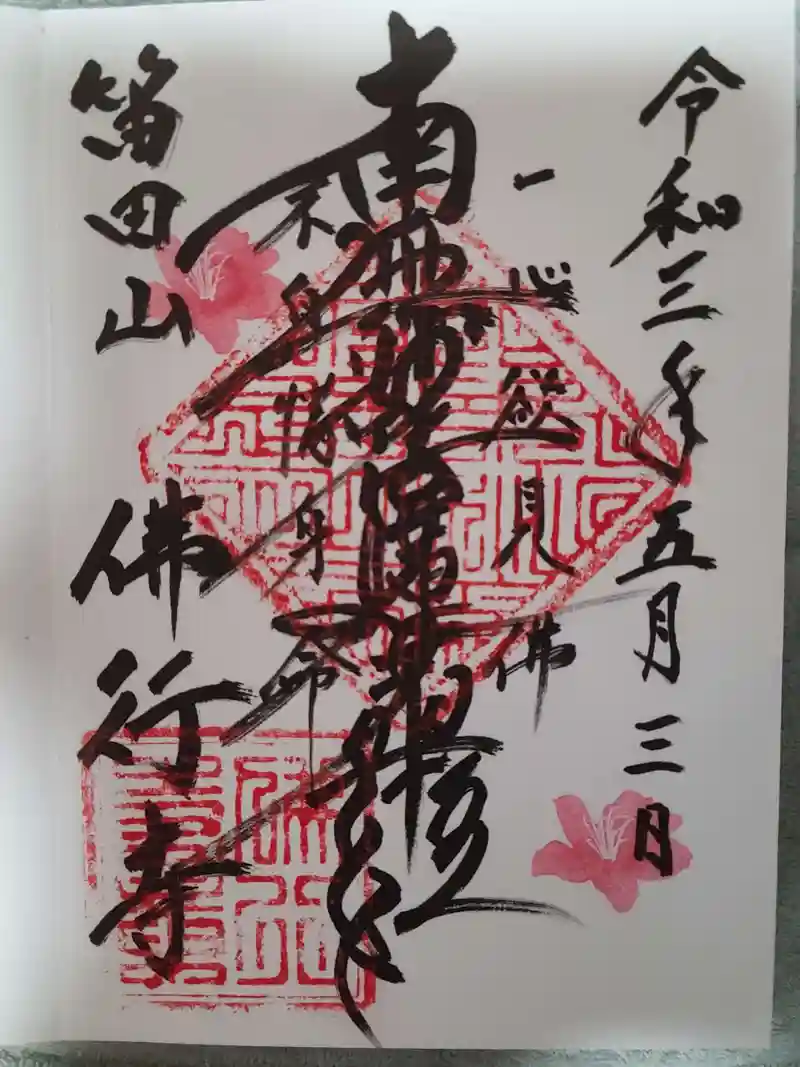 令和三年五月三日
一心欲見佛
南無妙法蓮華経
不自惜身命
笛田山 佛行寺